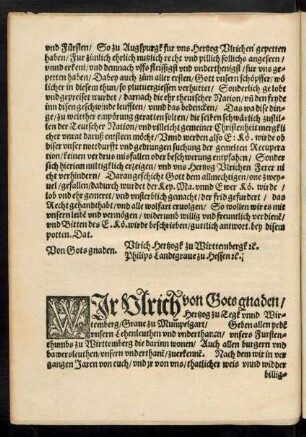 vnd Fürsten / So zu Augspurgk fur vns Hertzog Vlrichen gepetten
haben / Fur zimlich ehrlich nutzlich recht vnd pillich sollichs angeseen /
vnnd erkent / vnd demnach vffs fleissigst vnd vnderthenigst / fur vns ge-
petten haben / Dabey auch zum aller ersten / Gott vnsern schöpffer / wö
licher in diesem thun / so plutuergiessen verhuttet / Sonderlich gelobt
vnd gepreiset wurdet / darnach die ehr theutscher Nation / vñ den freyde
inn dien geschwinde leufften / vnnd das bedencken / Das wa dise ding-
zu weitther empörung geratten solten / die selben schwärlich zustil-
len / der Teutscher Nation / vnd villeicht gemeiner Christenheit mergkli
cher vnrat daruß entsteen möcht / Vnnd werden also E. Kö. wirde ob
diser vnser notturfft vnd gedrungen suchung der gemelten Recupera-
tion / keinen verdrus mißfallen oder beschwerung entpfahen / Sonder
sich hierinn miltigklich erzeigen / vnd vns Hertzog Vlrichen Ferrer ni
cht verhindern / Daran geschicht Gott dem allmechtigen / one zweyu-
uel / gefallen / dadurch wurdet der Key. Ma. vnnd Ewer Kö. wirde /
lob vnd ehr gemeret / vnd vnsterblich gemacht / der frid gefurdert / das
Recht gehandthabt / vnd alle wolfart eruolgen / So wollen wir es mit
vnserm leibt vnd vermögen / wider vmb willig vnd freuntlich verdienẽ /
vnd Bitten des E. Kö. wirde beschrieben / guttlich antwort. bey disem
potten. Dat.
Von Gots gnaden. Vlrich Hertzogk zu Wirttembergk ꝛc.
Philips Landtgraue zu Hessen ꝛc.
WIr Vlrich von Gots gnaden /
Hertzog zu Tegk vnnd Wir-
temberg / Graue zu Mumpelgart / Geben allen yede
vnsern Lehenleuthen vnd vnderthanen / vnsers Fursten-
thumbs zu Wirttemberg die darinn wonen / Auch allen burgern vnd
bawersleuthen / vnsern vnderthanẽ / zuerkennẽ. Nach dem wir in ver-
gangen Jaren von euch / vnd jr von vns / thatlicher weis vnnd widder
billig-